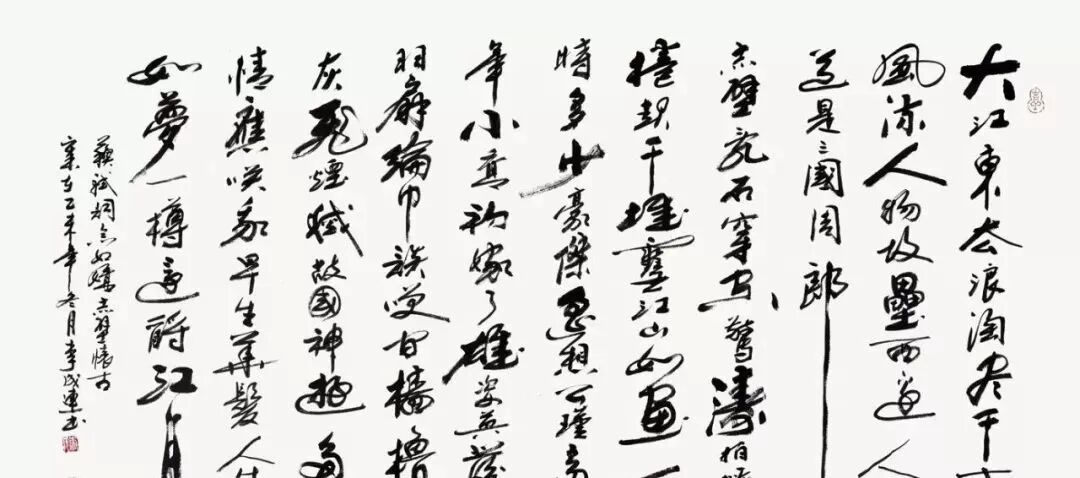 大江東去浪淘尽千
風流人物故壘西邊人
道是三國周郎
赤壁乱石穿空驚濤拍
捲起千堆雪江山如画一
時多少豪傑遥想公瑾當
年小喬初嫁了雄姿英發
羽扇綸巾談笑间檣櫓
灰飛煙滅故國神遊多
情應笑我早生華髮人生
如夢一樽還酹江月
蘇軾詞念奴嬌赤壁懷古
歲在乙未年冬月李成連书